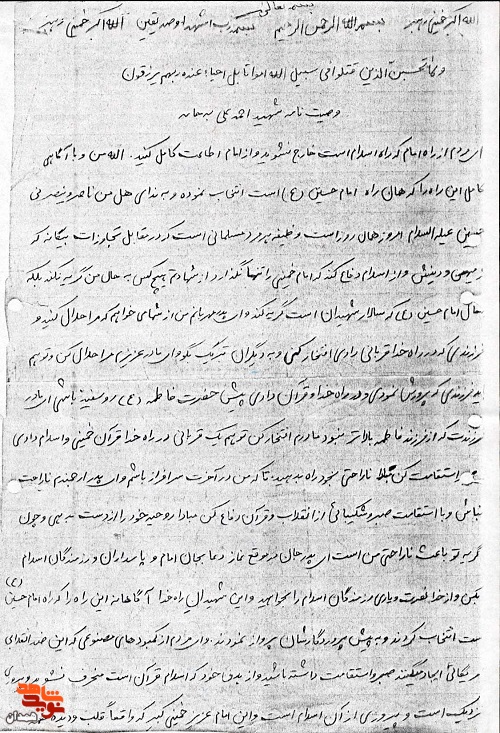 بسمه تعالی
الله اکبر خمینی رهبر بسم الله الرحمن الرحیم بسم رب الشهدا و صدیقین الله اکبر خمینی رهبر
و لا تحسبن الذین قتلوا فی سبیل الله امواتا بل احیاء عنده ربهم یرزقون
وصیت نامه شهید احمد علی
ای مردم از راه امام که راه اسلام است خارج نشوید و از امام اطاعت کامل کنید. الله من و با آگاهی
کامل این راه را که همان راه امام حسین (ع) است انتخاب نموده و به ندای هل من ناصر ینصرنی
حسین علیه السلام امروز همان روز است وظیفه هر مرد مسلمانی است که در مقابل تجاوزات بیگانه که
میهن و دینش و از اسلام دفاع کند که امام خمینی را تنها نگذارد از شهادتم هیچ کس به حال من گریه نکند بلکه
حال امام حسین (ع) که سالار شهیدان است گریه کند وای پدر مهربانم من از شما می خواهم که مرا حلال کنید و
فرزندی که در راه خدا قربانی دادی افتخار کنی و به دیگران تبریک بگو ای مادر عزیزم مرا حلال کن و تو هم
فرزندی که پرورش نمودی و در راه خدا و قرآن دادی پیش حضرت فاطمه (ع) رو سفید باشی ای مادر
فرزندت که از فرزند فاطمه بالاتر نبود مادرم افتخار کن تو هم یک قربانی در راه خدا قرآن خمینی و اسلام دادی
استقامت کن مبلا ناراحتی بخود راه بدهید تا که من در آخرت سرافراز باشم وای پدر ارجمندم ناراحت
نباش و با استقامت صبر و شکیبائی از انقلاب و قرآن دفاع کن مبادا روحیه خود را از دست بدهی و چون
گریه تو باعث ناراحتی من است ای پدر جان در موقع نماز دعا بجان امام و پاسداران و رزمندگان اسلام
بکن و از خدا نصرت و یاری رزمندگان اسلام را بخواهید و این شهیدان راه خدا آگاهانه این راه را که راه امام حسین (ع)
است انتخاب کردند و به پیش پروردگارشان پرواز نمودند. وای مردم از کمبودهای مصنوعی که این ضد انقلابی
ایجاد میکنند صبر و استقامت داشته باشید و از هدف خود که اسلام قرآن است منحرف نشوید و پیروزی
نزدیک است و پیروزی از آن اسلام است و این امام عزیز خمینی کبیر که واقعاً قلب و دیده
نوید شاهد